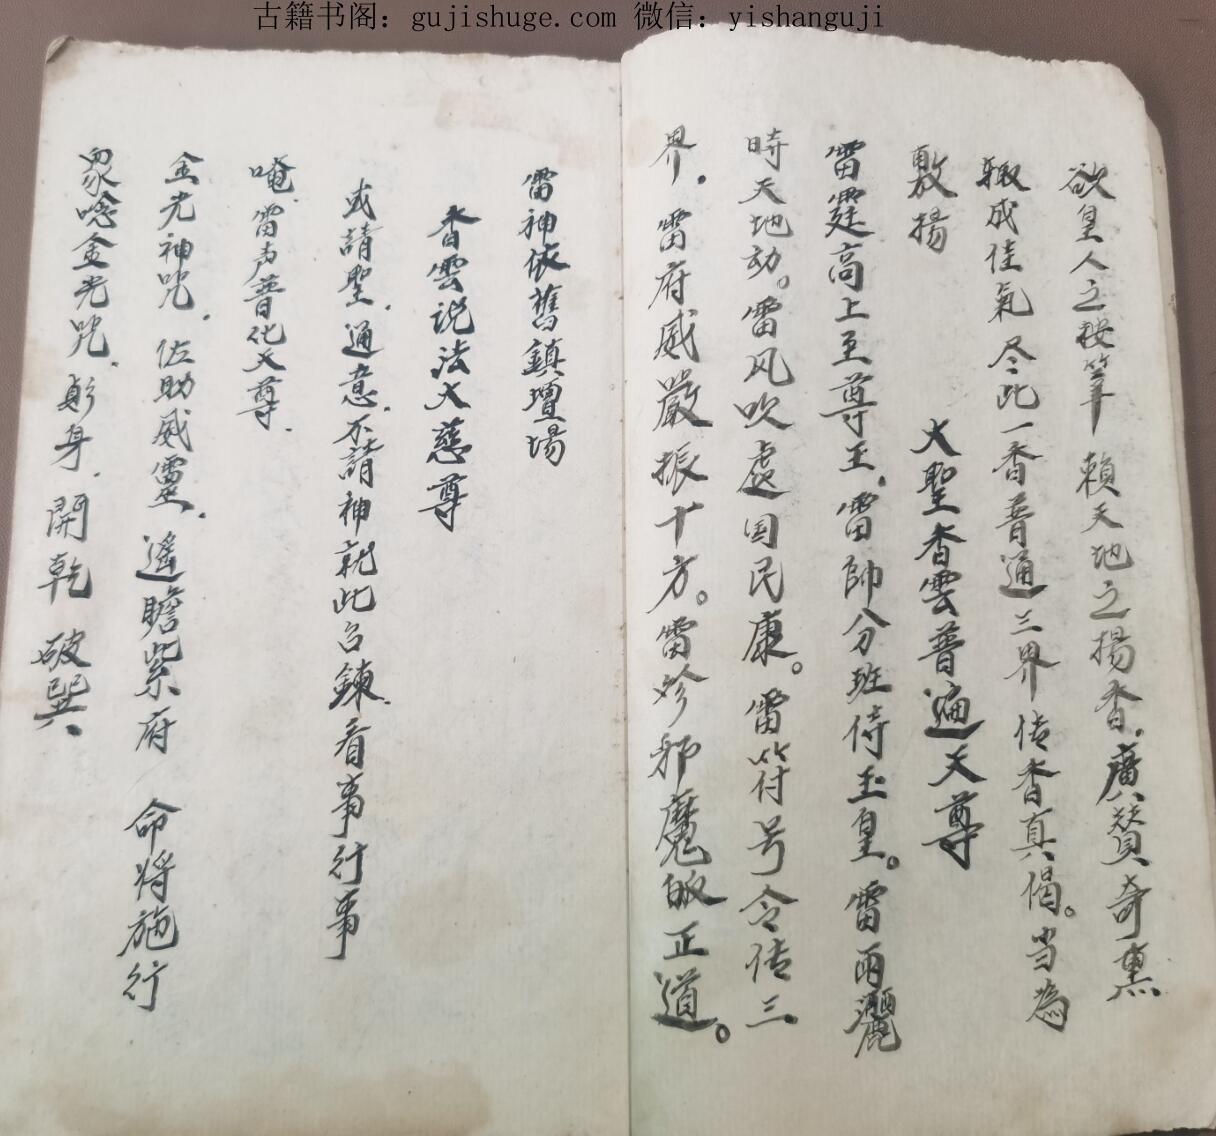 古籍书阁：gujishuge.com 微信：yishanguji
欲皇人之按筆 賴天地之揚香，廣贊奇熏
輙成佳氣 尽此一香普通三界传香真偈。当為
敷揚 大聖香雲普遍天尊
雷霆高上至尊王。雷帥分班侍玉皇。雷雨灑
時天地动。雷风吹處国民康。雷符号令传三
界．雷府威嚴振十方。雷妙邪魔皈正道。
雷神依舊鎮壇場
香雲说法大慈尊
或請聖．通意．不請神就此召鍊．看事行事
唵．雷声普化天尊．
金光神咒．佐助威靈．遥瞻紫府 命将施行
眾唸金光咒．躬身．開乾 破巽